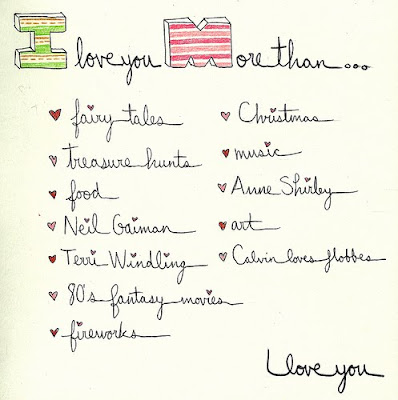 I love you More than...
fairy tales
treasure hunts
food
Neil Gaiman
Terri Windling
80's fantasy movies
fireworks
Christmas
music
Anne Shirley
art
Calvin loves Hobbes
I love you